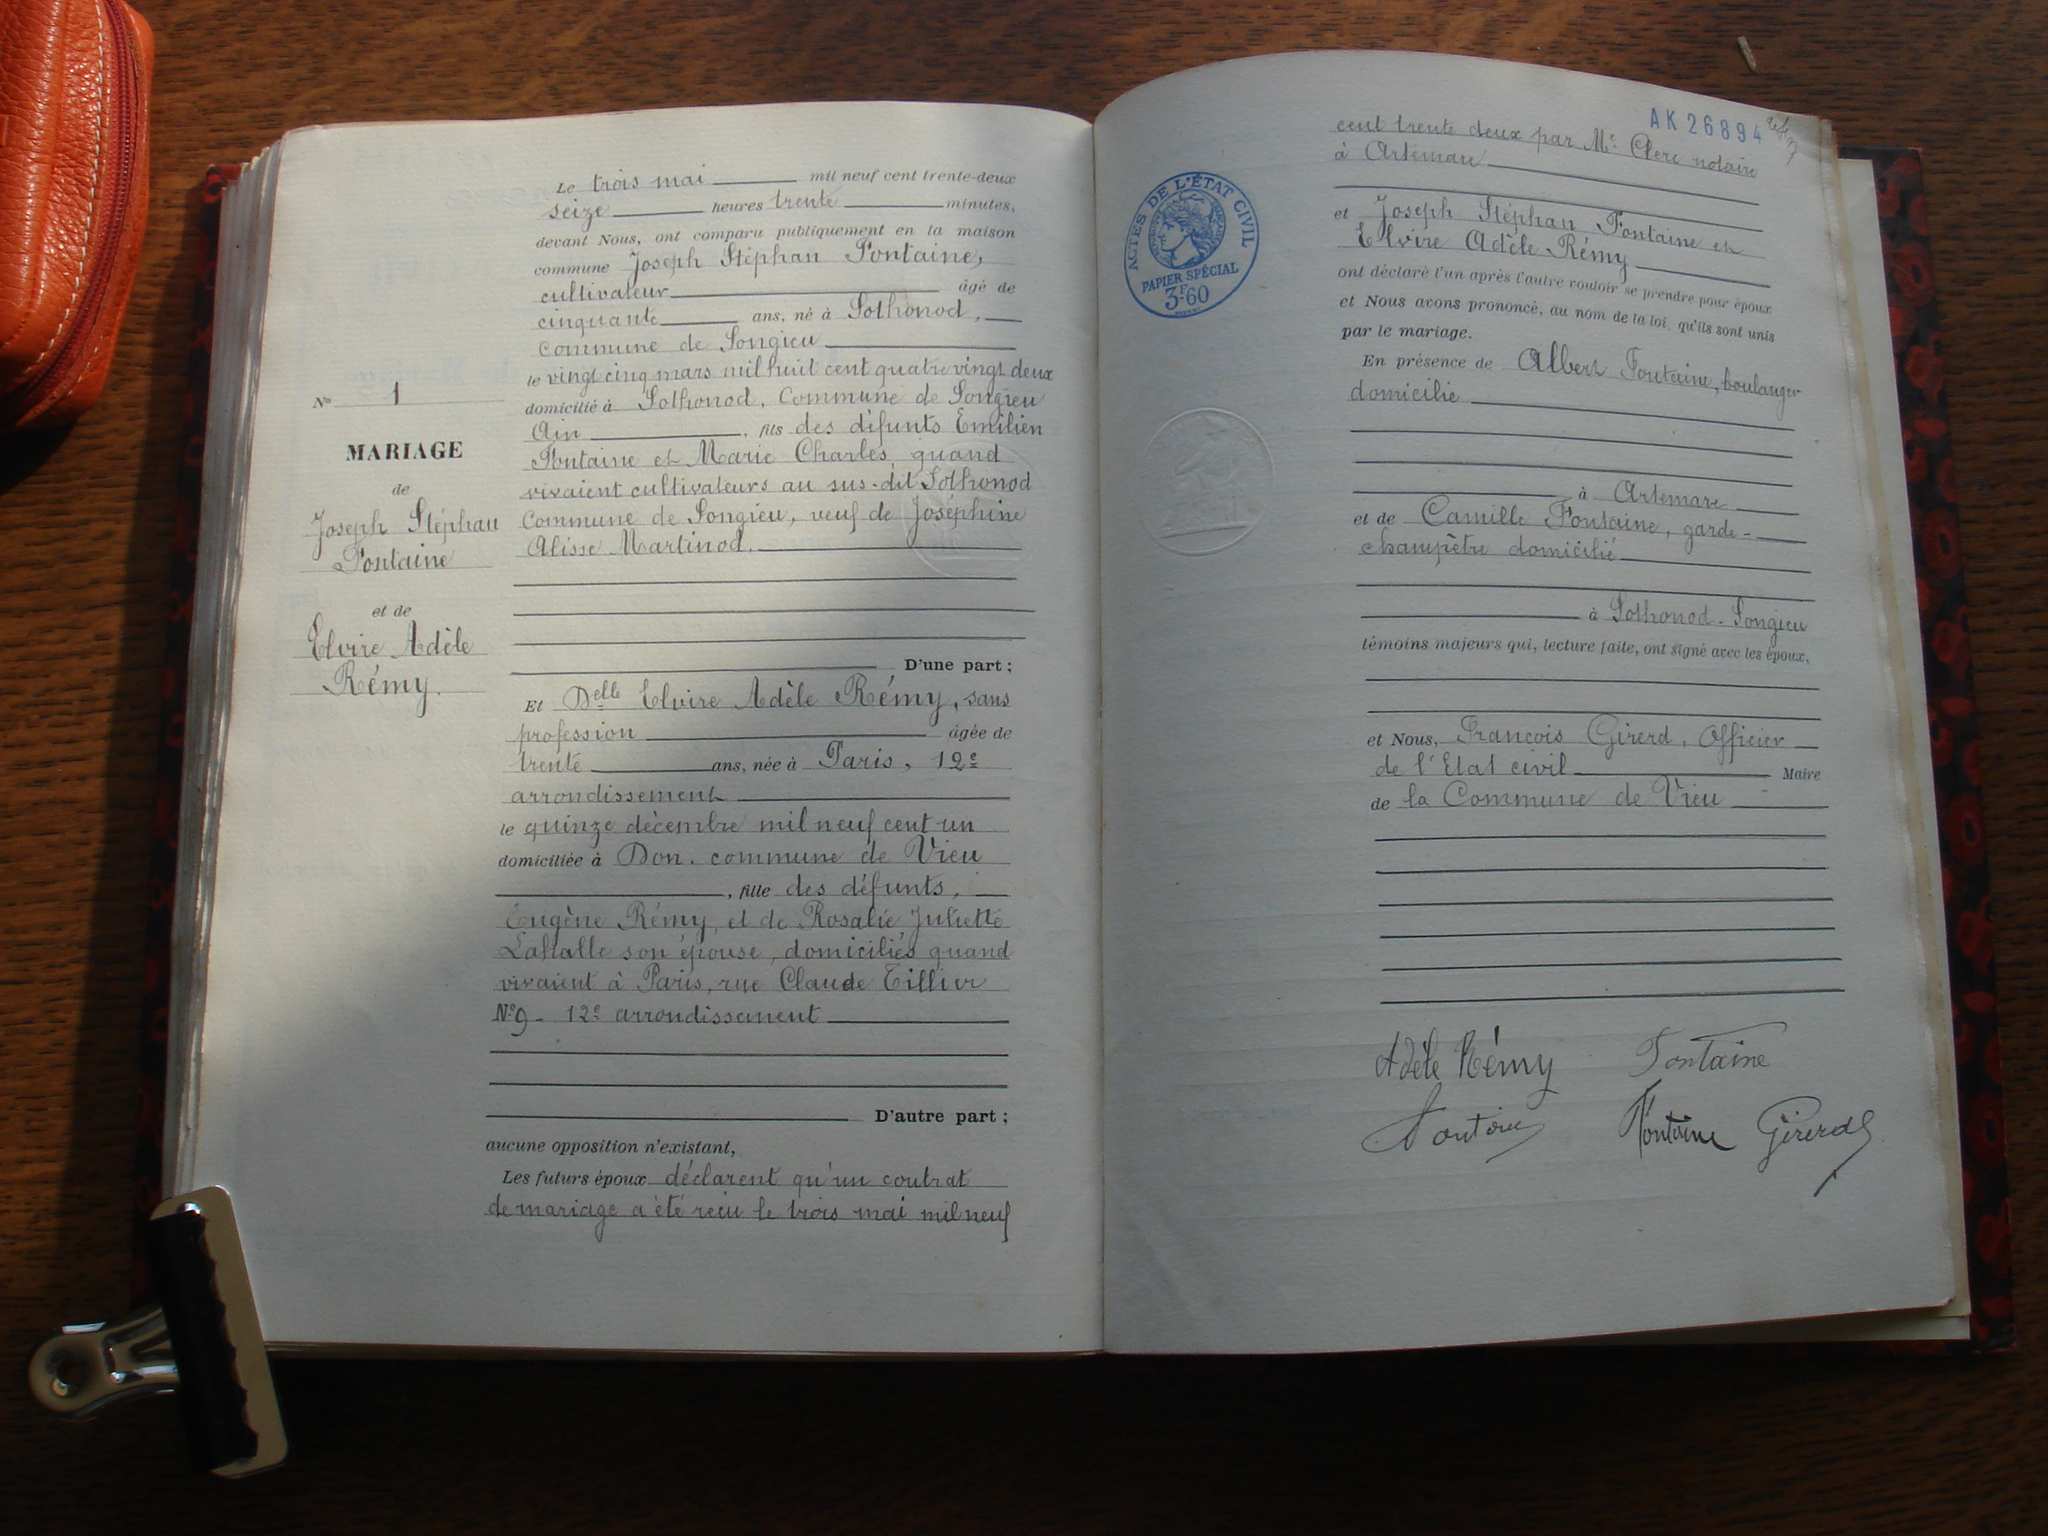 Nº 1
MARIAGE
de
Joseph Stéphan
Fontaine
et de
Elvire Adèle
Rémy.
Le trois mai mil neuf cent trente-deux
seize heures trente minutes,
devant Nous, ont comparu publiquement en la maison
commune Joseph Stéphan Fontaine,
cultivateur âgé de
cinquante ans, né à Sothonod,
commune de Songieu
le vingt cinq mars mil huit cent quatre vingt deux
domicilié à Sothonod, Commune de Songieu
Ain, fils des défunts Emilien
Fontaine et Marie Charles, quand
vivaient cultivateurs au sus-dit Sothonod
Commune de Songieu, veuf de Joséphine
Alisse Martinod.
D'une part ;
Et Delle Elvire Adèle Rémy, sans
profession âgée de
trente ans, née à Paris, 12e
arrondissement
le quinze décembre mil neuf cent un
domiciliée à Don. commune de Vieu
, fille des défunts,
Eugène Rémy, et de Rosalie Juliette
son épouse, domiciliés quand
vivaient à Paris, rue Claude Tillier
Nº 9 - 12e arrondissement
D'autre part ;
aucune opposition n'existant,
Les futurs époux déclarent qu'un contrat
de mariage a été reçu le trois mai mil neuf
AK 26894
cent trente deux par Me Clerc notaire
à Artemare
ACTES DE L'ÉTAT CIVIL
PAPIER SPÉCIAL
3F.60
et Joseph Stéphan Fontaine et
Elvire Adèle Rémy
ont déclaré l'un après l'autre vouloir se prendre pour époux
et Nous avons prononcé, au nom de la loi, qu'ils sont unis
par le mariage.
En présence de Albert Fontaine, boulanger
domicilié
à Artemare
et de Camille Fontaine, garde-
champêtre domicilié
à Sothonod-Songieu
témoins majeurs qui, lecture faite, ont signé avec les époux,
et Nous, François Girerd, Officier
de l'Etat civil Maire
de la Commune de Vieu
Adèle Rémy Fontaine
Fontaine Fontaine Girerd